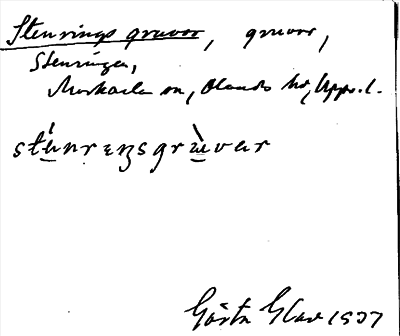 Stenrings gruvor, gruvor,
Stenringen,
Morkarla sn, Olands hd, Uppl.
stè̱nrɛŋsgrù̱var
Gösta Glas 1937